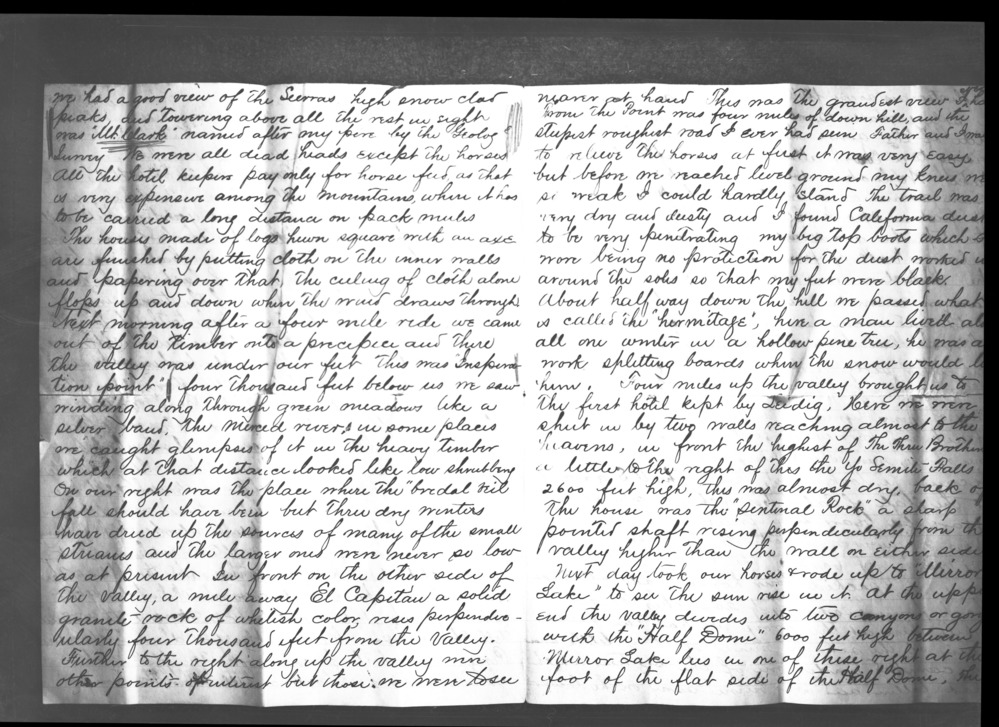 we had a good view of the Sierras high snow clad
peaks, and towering above all the rest in sight
was "Mt Clark" named after my pere by the Geolog
Survey We were all dead heads except the horses
All the hotel keepers pay only for horse feed, as that
is very expensive among the mountains, when it has
to be carried a long distance on pack mules
The houses made of logs hewn square with an axe
are finished by putting cloth on the inner walls
and papering over that, the ceiling of cloth alone
flops up and down when the wind draws through
Next morning after a four mile ride we came
out of the timber onto a precipice and there
the valley was under our feet This was "Inspira-
tion point" four thousand feet below us we saw
winding along through green meadows like a
silver band, the Merced river, in some places
we caught glimpses of it in the heavy timber
which at that distance looked like low shrubbery
On our right was the place where the "bredal veil
fall should have been but three dry winters
have dried up the sources of many of the small
streams and the larger ones were never so low
as at present In front on the other side of
the Valley, a mile away El Capitan a solid
granite rock of whitish color, rises perpendic-
ularly four thousand feet from the Valley.
Further to the right along up the valley were
other points of interest but those we were to see
nearer at hand This was the grandest view of
From the Point was four miles of down hill, and the
steepest roughest road I ever had seen Father and I
to relieve the horses at first it was very easy
but before we reached level ground my knees
so weak I could hardly stand The trail was
very dry and dusty and I found California dust
to be very penetrating my big top boots which
wore being no protection for the dust worked
around the soles so that my feet were black.
About half way down the hill we passed what
is called the "hermitage", here a man lived
all one winter in a hollow pine tree, he was
work splitting boards when the snow would
him. Four miles up the valley brought us to
the first hotel kept by Leidig, Here we were
shut in by two walls reaching almost to the
heavens, in front the highest of The Three Brothers
a little to the right of this the Yo Semite Falls
2600 feet high, this was almost dry, back
the house was the "Sentinal Rock" a sharp
pointed shaft rising perpendicularly from the
valley higher than the wall on either side
Next day took our horses & rode up to "Mirror
Lake" to see the sun rise in it. at the upper
end the valley divides into two canyons or
with the "Half Dome" 6000 feet high between
Mirror Lake lies in one of these right at the
foot of the flat side of the Half Dome, the